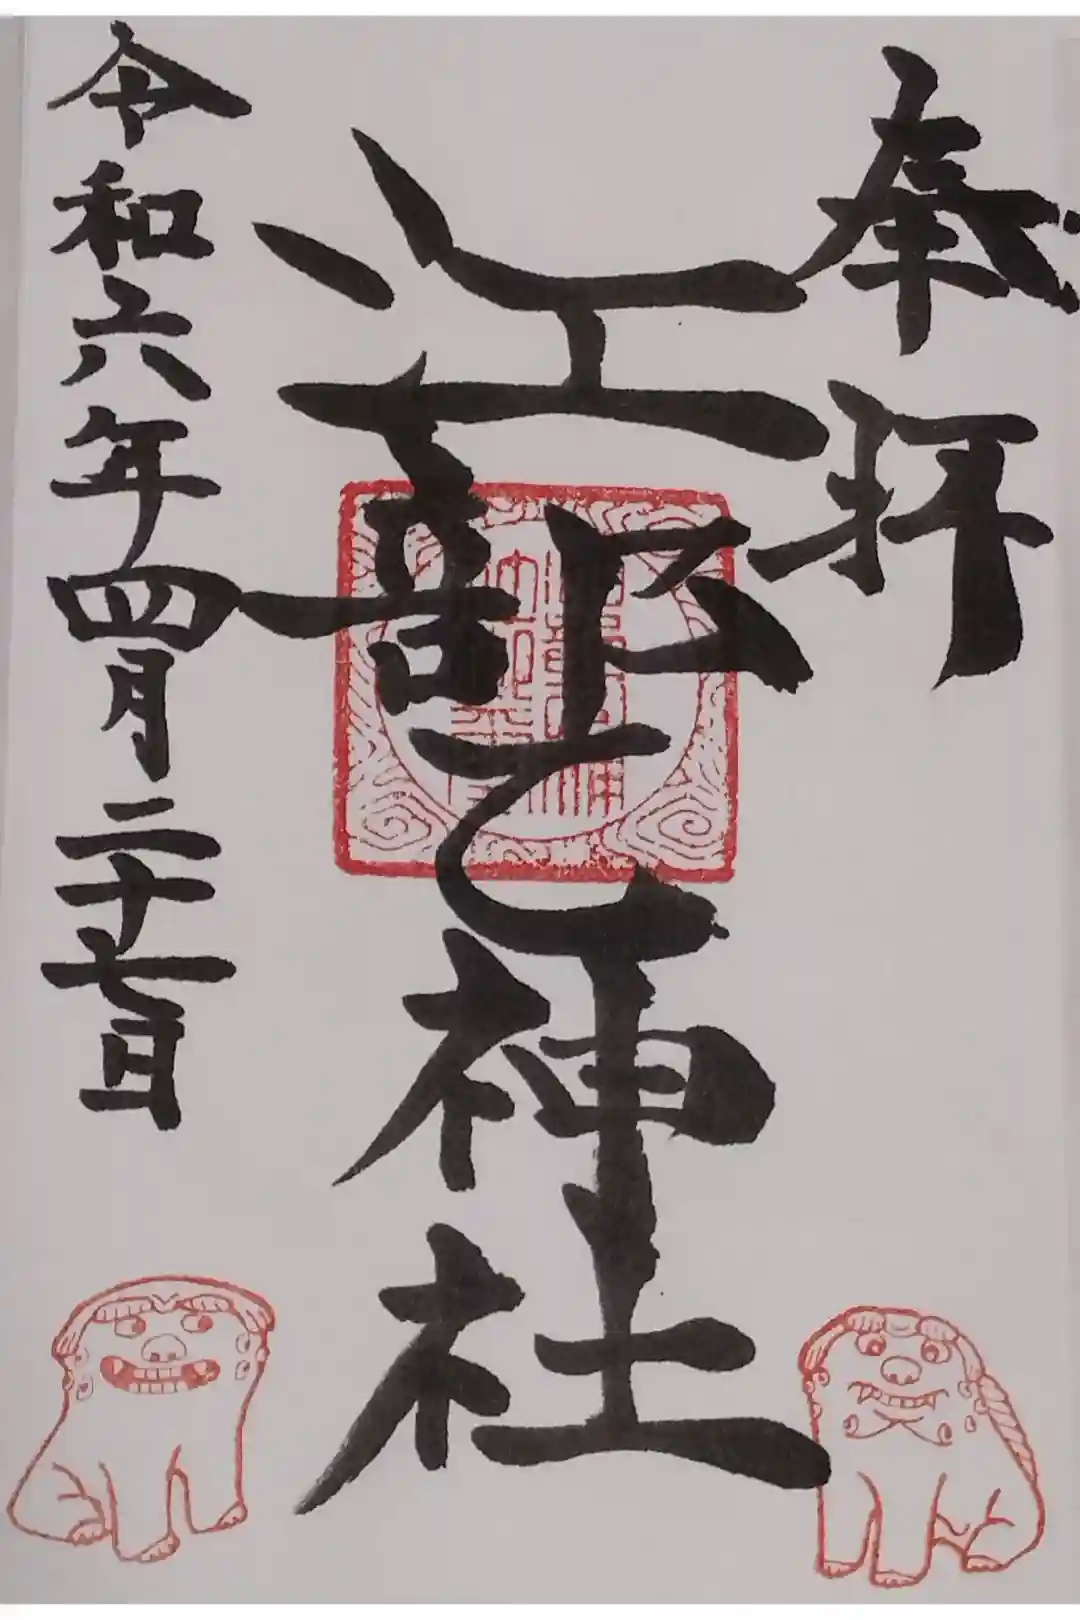 奉拝
江部乙神社
令和六年四月二十七日